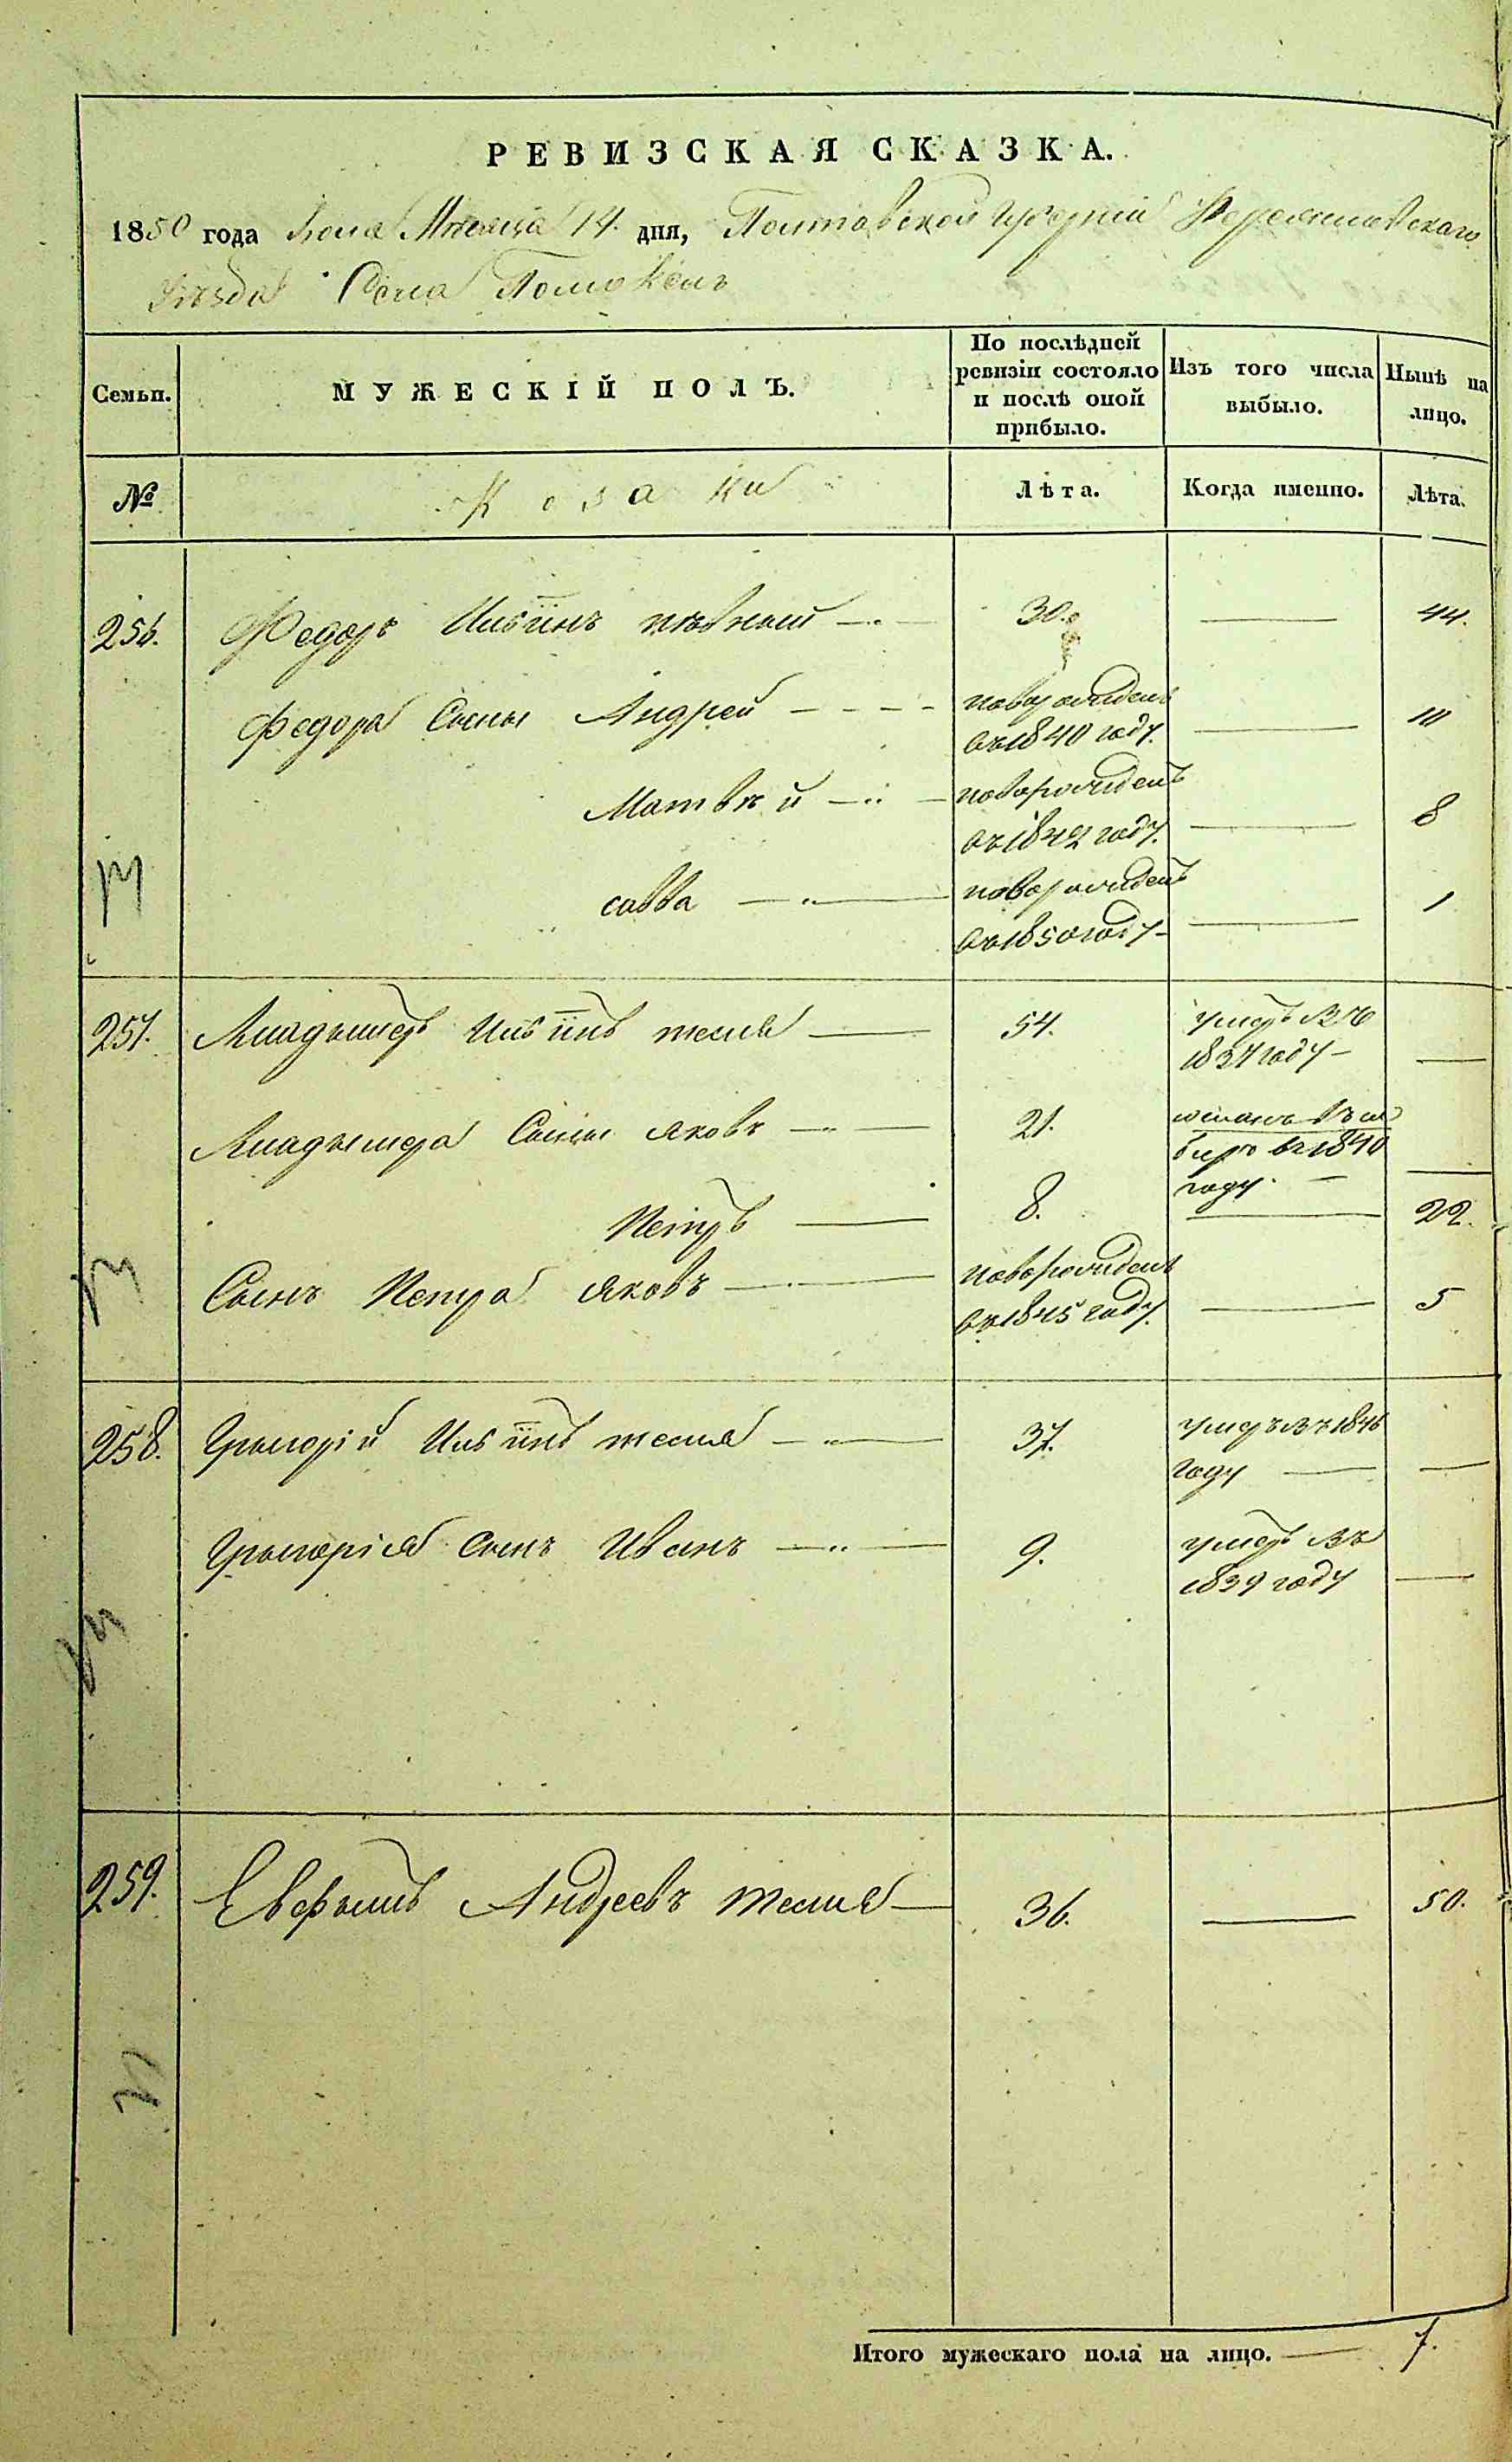 РЕВИЗСКАЯ СКАЗКА.
1850 года Іюля Мѣсяца 14. дня, Полтавской Губерніи Переяславскаго
Уѣзда Села Помоклей
Семьи. МУЖЕСКІЙ ПОЛЪ. По послѣдней ревизіи состояло и послѣ оной прибыло. Изъ того числа выбыло. Нынѣ на лицо.
№ Козаки Лѣта. Когда именно. Лѣта.
256. Федоръ Ильинъ 30. 44.
Федора Сыны Андрей новорожденъ въ 1840 году. 10
Матвѣй новорожденъ въ 1842 году. 8
савва новорожденъ въ 1850 году 1
257. Владымеръ Ильинъ 54. умеръ въ 1837 году
Владымера Сыны яковъ 21. въ 1840 году.
Петръ 8. 22.
Сынъ Петра яковъ новорожденъ въ 1845 году. 5
258. Грыгорій Ильинъ 37. умеръ въ 1846 году
Грыгорія сынъ Иванъ 9. умеръ въ 1839 году
259. Андреевъ 36. 50.
Итого мужескаго пола на лицо. 7.